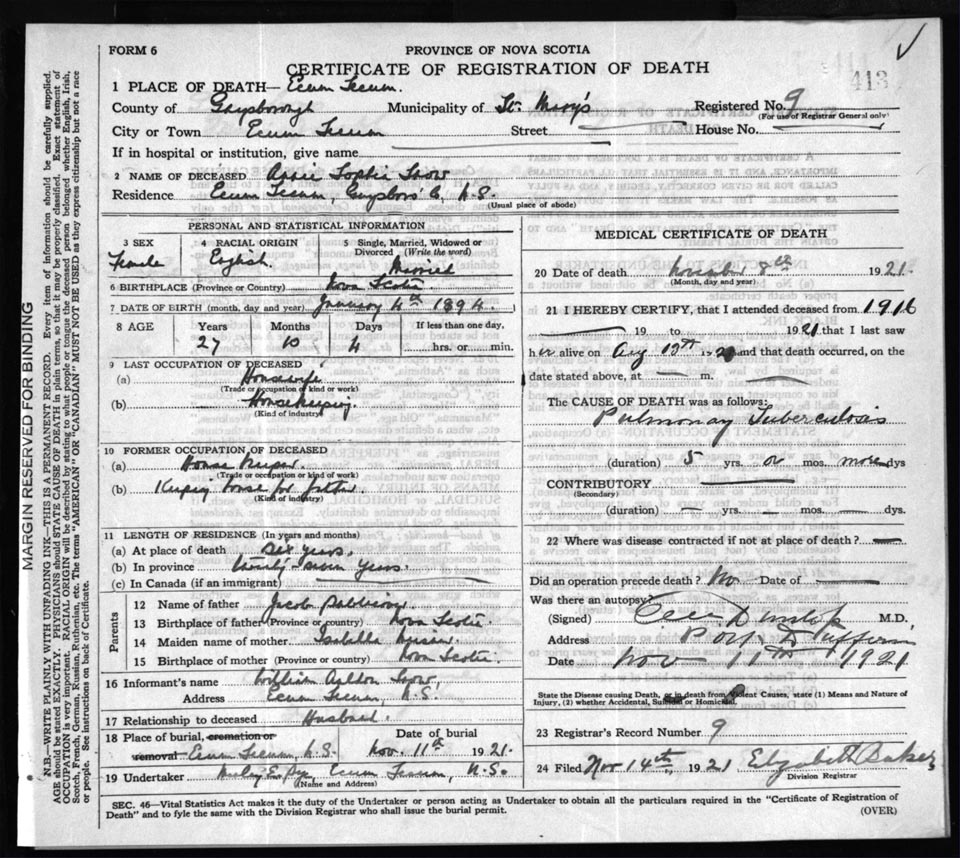 FORM 6
PROVINCE OF NOVA SCOTIA
CERTIFICATE OF REGISTRATION OF DEATH
413
1 PLACE OF DEATH— Ecum Secum.
County of Guysborough Municipality of St. Mary's Registered No. 9
(For use of Registrar General only)
City or Town Ecum Secum Street House No.
If in hospital or institution, give name
2 NAME OF DECEASED Sophia Snow
Residence Ecum Secum, Guysboro' Co, N.S.
(Usual place of abode)
PERSONAL AND STATISTICAL INFORMATION
3 SEX 4 RACIAL ORIGIN 5 Single, Married, Widowed or Divorced (Write the word)
Female English Married
6 BIRTHPLACE (Province or Country) Nova Scotia
7 DATE OF BIRTH (month, day and year) January 4th 1894.
8 AGE Years Months Days If less than one day,
27 10 4 hrs. or min.
9 LAST OCCUPATION OF DECEASED
(a) Housewife
(Trade or occupation of kind or work)
(b) Housekeeping.
(Kind of industry)
10 FORMER OCCUPATION OF DECEASED
(a) House Keeper.
(Trade or occupation of kind or work)
(b) Keeping house for father
(Kind of industry)
11 LENGTH OF RESIDENCE (In years and months)
(a) At place of death Six years.
(b) In province twenty seven years.
(c) In Canada (if an immigrant)
Parents
12 Name of father Jacob
13 Birthplace of father (Province or country) Nova Scotia
14 Maiden name of mother Isabella
15 Birthplace of mother (Province or country) Nova Scotia.
16 Informant's name William Snow,
Address Ecum Secum, N.S.
17 Relationship to deceased Husband.
18 Place of burial, cremation or removal Ecum Secum, N.S. Date of burial Nov. 11th 1921.
19 Undertaker Ecum Secum, N.S.
(Name and Address)
MEDICAL CERTIFICATE OF DEATH
20 Date of death November 8th 1921.
(Month, day and year)
21 I HEREBY CERTIFY, that I attended deceased from 1916
19 to 1921 that I last saw
her alive on Aug 13th 1921 and that death occurred, on the
date stated above, at m.
The CAUSE OF DEATH was as follows:
Pulmonary Tuberculosis
(duration) 5 yrs. or mos. more dys
CONTRIBUTORY
(Secondary)
(duration) yrs. mos. dys.
22 Where was disease contracted if not at place of death?
Did an operation precede death? No Date of
Was there an autopsy?
(Signed) Dunlop M.D.,
Address Port Dufferin
Date Nov 11th 1921
State the Disease causing Death, or in death from Violent Causes, state (1) Means and Nature of
Injury, (2) whether Accidental, Suicidal or Homicidal.
23 Registrar's Record Number 9
24 Filed Nov 14th, 1921 Elizabeth Baker
Division Registrar
SEC. 46—Vital Statistics Act makes it the duty of the Undertaker or person acting as Undertaker to obtain all the particulars required in the "Certificate of Registration of
Death" and to fyle the same with the Division Registrar who shall issue the burial permit.
(OVER)
MARGIN RESERVED FOR BINDING
N.B.—WRITE PLAINLY WITH UNFADING INK—THIS IS A PERMANENT RECORD. Every item of information should be carefully supplied.
AGE should be stated EXACTLY. PHYSICIANS should STATE CAUSE OF DEATH in plain terms, so that it may be properly classified. Exact statement of
OCCUPATION is very important. RACIAL ORIGIN will be described by stating to what people or tongue the deceased person belonged whether English, Irish,
Scotch, French, German, Russian, Ruthenian, etc. The terms "AMERICAN" OR "CANADIAN" MUST NOT BE USED as they express citizenship but not a race
or people. See instructions on back of Certificate.